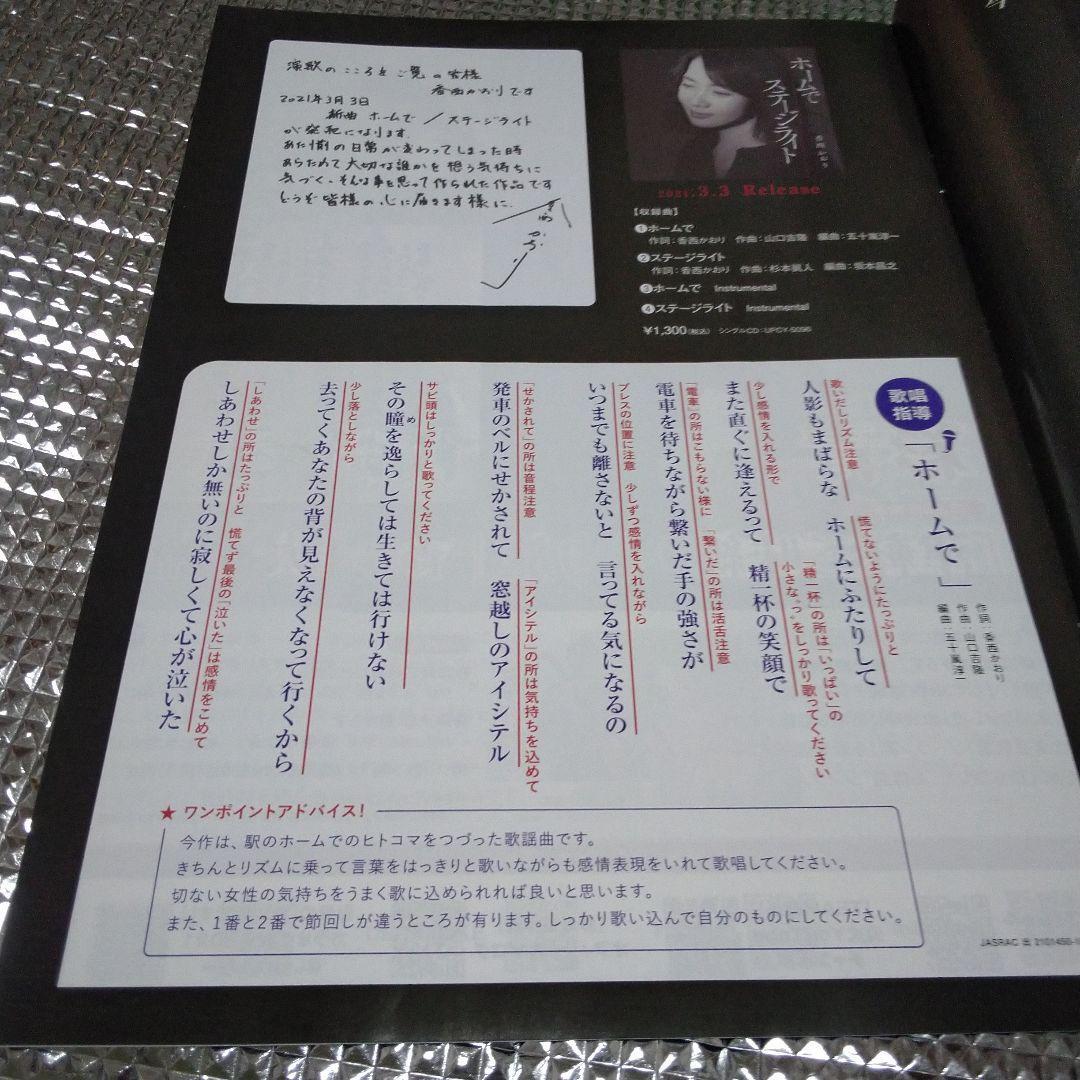 演歌のこころをご覧の皆様
香西かおりです
2021年3月3日
新曲 ホームで／ステージライト
が発売になります。
あた懰の日常が変わってしまった時
あらためて大切な誰かを想う気持ちに
気づく、そんな事を思って作られた作品です
どうぞ皆様の心に届きます様に。
香西かおり
ホームで
ステージライト
香西かおり
2021.3.3 Release
【収録曲】
❶ホームで
作詞：香西かおり 作曲：山口吉隆 編曲：五十嵐淳一
❷ステージライト
作詞：香西かおり 作曲：杉本眞人 編曲：坂本昌之
❸ホームで Instrumental
❹ステージライト Instrumental
¥1,300(税込) シングルCD：UPCY-5096
歌唱
指導
「ホームで」
作詞：香西かおり
作曲：山口吉隆
編曲：五十嵐淳一
歌いだしリズム注意 慌てないようにたっぷりと
人影もまばらな ホームにふたりして
少し感情を入れる形で 「精一杯」の所は「いっぱい」の
小さな“っ”をしっかり歌ってください
また直ぐに逢えるって 精一杯の笑顔で
「電車」の所はこもらない様に 「繋いだ」の所は活舌注意
電車を待ちながら繋いだ手の強さが
ブレスの位置に注意 少しずつ感情を入れながら
いつまでも離さないと 言ってる気になるの
「せかされて」の所は音程注意 「アイシテル」の所は気持ちを込めて
発車のベルにせかされて 窓越しのアイシテル
サビ頭はしっかりと歌ってください
その瞳を逸らしては生きては行けない
め
少し落としながら
去ってくあなたの背が見えなくなって行くから
「しあわせ」の所はたっぷりと 慌てず最後の「泣いた」は感情をこめて
しあわせしか無いのに寂しくて心が泣いた
★ ワンポイントアドバイス！
今作は、駅のホームでのヒトコマをつづった歌謡曲です。
きちんとリズムに乗って言葉をはっきりと歌いながらも感情表現をいれて歌唱してください。
切ない女性の気持ちをうまく歌に込められれば良いと思います。
また、1番と2番で節回しが違うところが有ります。しっかり歌い込んで自分のものにしてください。
JASRAC 出 2101450-1